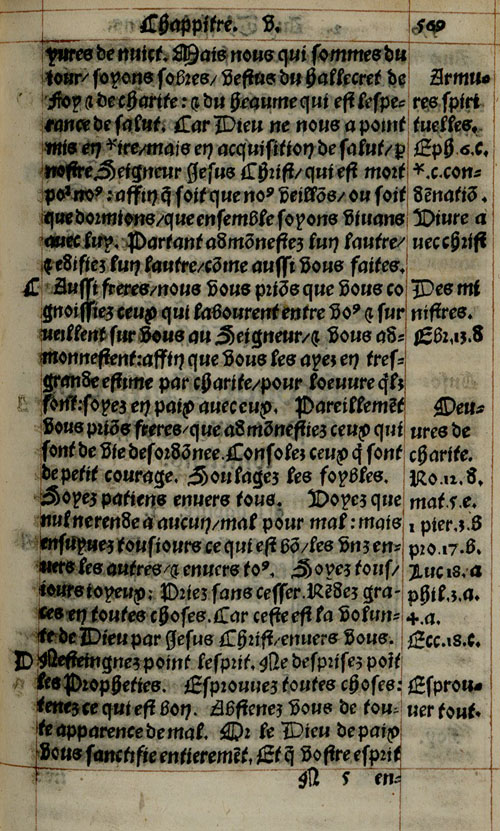 Chappitre. V. 569
yures de nuict. Mais nous qui sommes du
iour/ soyons sobres/ vestus du hallecret de
Foy & de charite: & du heaume qui est lespe-
rance de salut. Car Dieu ne nous a point
mis en *ire/mais en acquisition de salut/ p̱
nostre Seigneur Jesus Christ/ qui est mort
poꝰ noꝰ: affin q̃ soit que noꝰ veillõs/ ou soit
que dormions/ que ensemble soyons viuans
auec luy. Partant admõnestez lun lautre/
& edifiez lun lautre/ cõme aussi vous faites.
C Aussi freres/ nous vous priõs que vous co
gnoissiez ceux qui labourent entre voꝰ & sur
ueillent sur vous au Seigneur/ & vous ad-
monnestent: affin que vous les ayez en tres-
grande estume par charite/ pour loeuure q̃lz
font: soyez en paix auec eux. Pareillemẽt
vous priõs freres/ que admõnestiez ceux qui
sont de vie desordõnee. Consolez ceux q̃ sont
de petit courage. Soulagez les foybles.
Soyez patiens enuers tous. Voyez que
nul ne rende a aucun/ mal pour mal: mais
ensuyuez tousiours ce qui est bõ/ les vnz en-
uers les autres/ & enuers toꝰ. Soyez tous/
iours ioyeux: Priez sans cesser. Rẽdez gra-
ces en toutes choses. Car ceste est la volun-
te de Dieu par Jesus Christ/ enuers vous.
D Nesteingnez point lesprit. Ne desprisez poĩt
les Propheties. Esprouuez toutes choses:
tenez ce qui est bon. Abstenez vous de tou-
te apparence de mal. Or le Dieu de paix
vous sanctifie entieremẽt. Et q̃ vostre esprit
N 5 en-
Armu-
res spiri
tuelles.
Eph.6.c.
*.c.con-
dẽnatiõ.
Viure a
uec christ
Des mi
nistres.
Ebr.13.d
Oeu-
ures de
charite.
Ro.12.d.
mat.5.e.
1 pier.3.b
pro.17.b.
Luc 18.a
phil.3.a.
4.a.
Ecc.18.c.
Esprou-
uer tout.